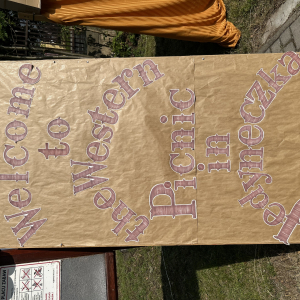 Welcome
to
the Western
Picnic
in
Jedyneczka